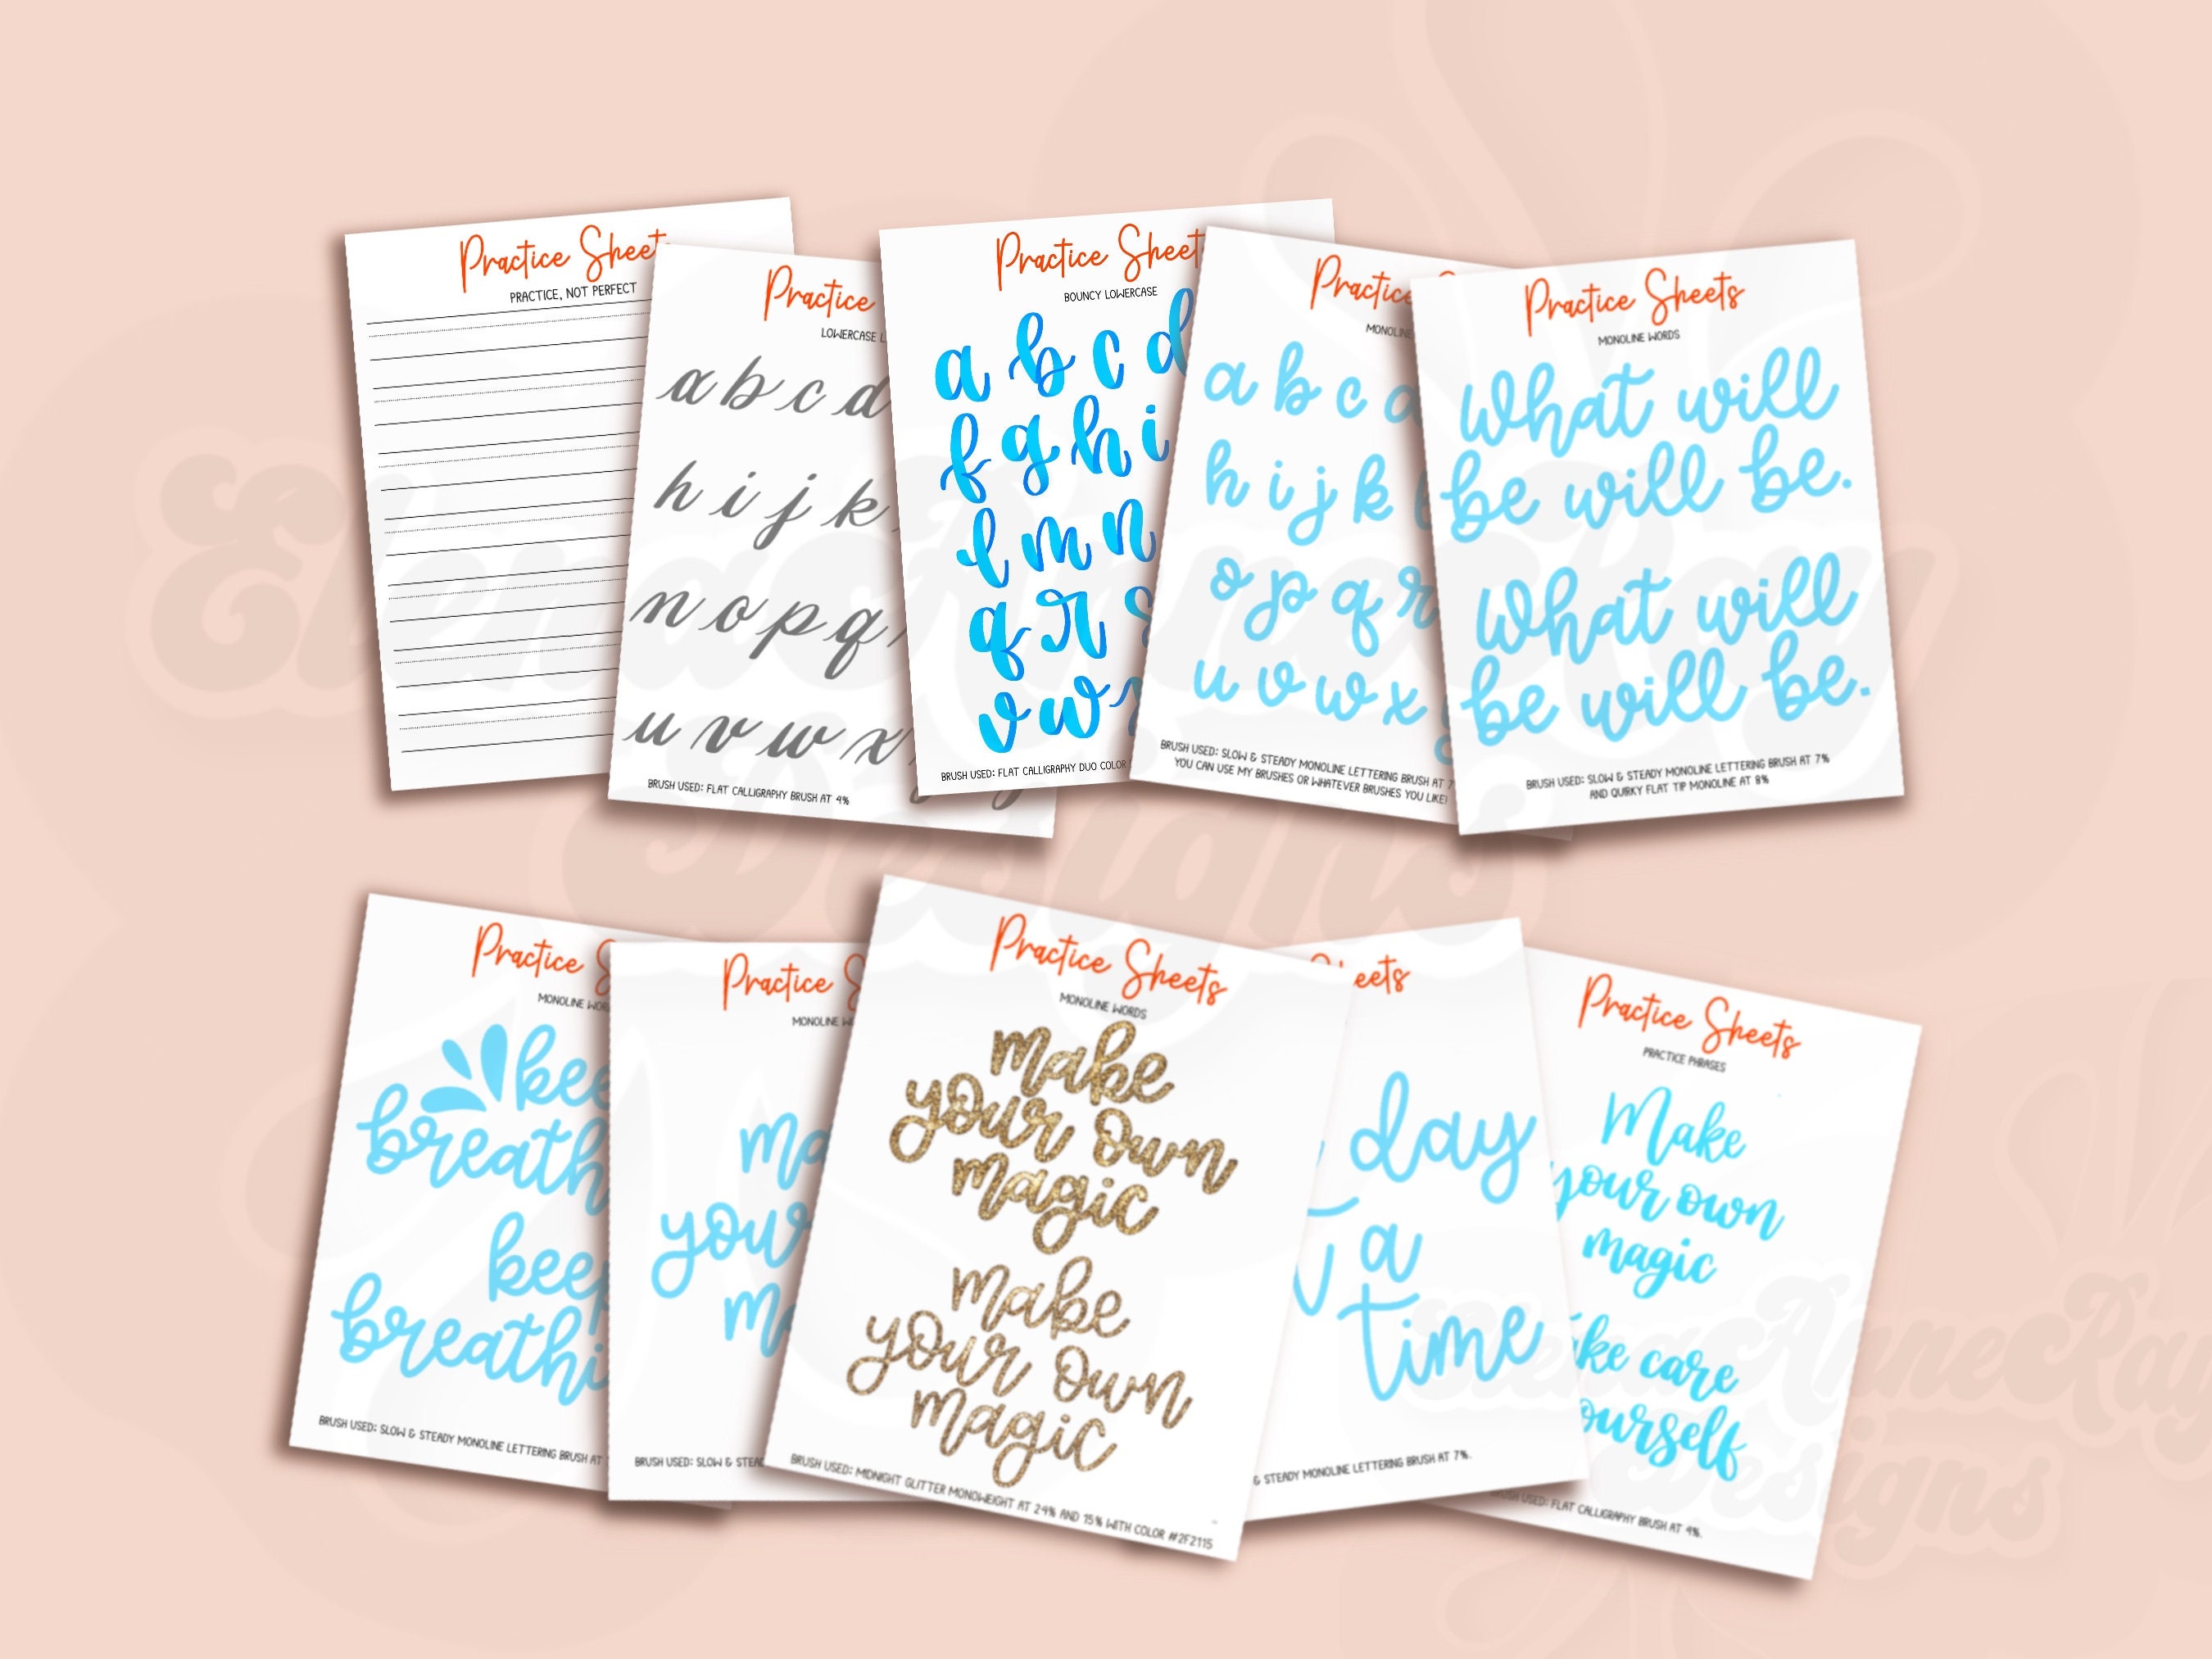 Practice Sheet
PRACTICE, NOT PERFECT
Practice
LOWERCASE L
a b c d
h i j k
n o p q
u v w x
BRUSH USED: FLAT CALLIGRAPHY BRUSH AT 4%
Practice Sheet
BOUNCY LOWERCASE
a b c d
f g h i
l m n
q r s
v w
BRUSH USED: FLAT CALLIGRAPHY DUO COLOR
Practice
MONOLINE
a b c d
h i j k l
o p q r
u v w x y
BRUSH USED: SLOW & STEADY MONOLINE LETTERING BRUSH AT 7
YOU CAN USE MY BRUSHES OR WHATEVER BRUSHES YOU LIKE!
Practice Sheets
MONOLINE WORDS
What will
be will be.
What will
be will be.
BRUSH USED: SLOW & STEADY MONOLINE LETTERING BRUSH AT 7%
AND QUIRKY FLAT TIP MONOLINE AT 8%
Practice S
MONOLINE WOR
kee
breath
keep
breathi
BRUSH USED: SLOW & STEADY MONOLINE LETTERING BRUSH AT
Practice S
MONOLINE W
ma
your
ma
BRUSH USED: SLOW & STEAD
Practice Sheets
MONOLINE WORDS
make
your own
magic
make
your own
magic
BRUSH USED: MIDNIGHT GLITTER MONOWEIGHT AT 24% AND 15% WITH COLOR #2F2115
heets
day
a
time
& STEADY MONOLINE LETTERING BRUSH AT 7%.
Practice Sheets
PRACTICE PHRASES
Make
your own
magic
ake care
ourself
BRUSH USED: FLAT CALLIGRAPHY BRUSH AT 4%.
ElenaAnneRay
Designs
ElenaAnneRay
Designs